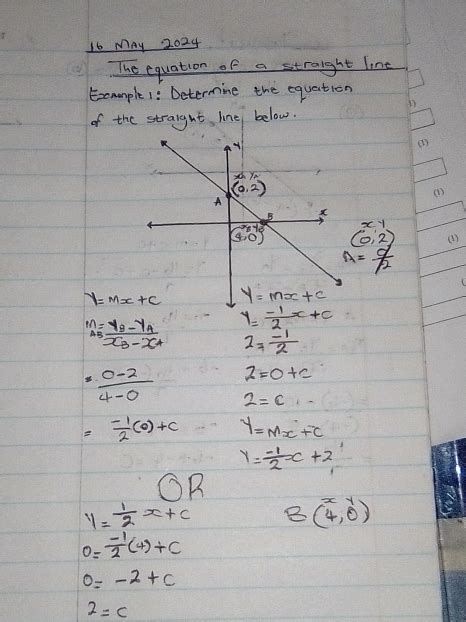 16 May 2024
The equation of a straight line
Example 1: Determine the equation
of the straight line below.
y
xA yA
(0,2)
A
B
x
xB yB
(4,0)
x y
(0,2)
A =
y = mx + c
mAB = yB - yA / xB - xA
= 0-2 / 4-0
= -1/2 (0) + c
y = mx + c
y = -1/2 x + c
2 = -1/2
2 = 0 + c
2 = c
y = mx + c
y = -1/2 x + 2
OR
y = 1/2 x + c
0 = -1/2 (4) + c
0 = -2 + c
2 = c
x y
B (4,0)
(1)
(1)
(1)